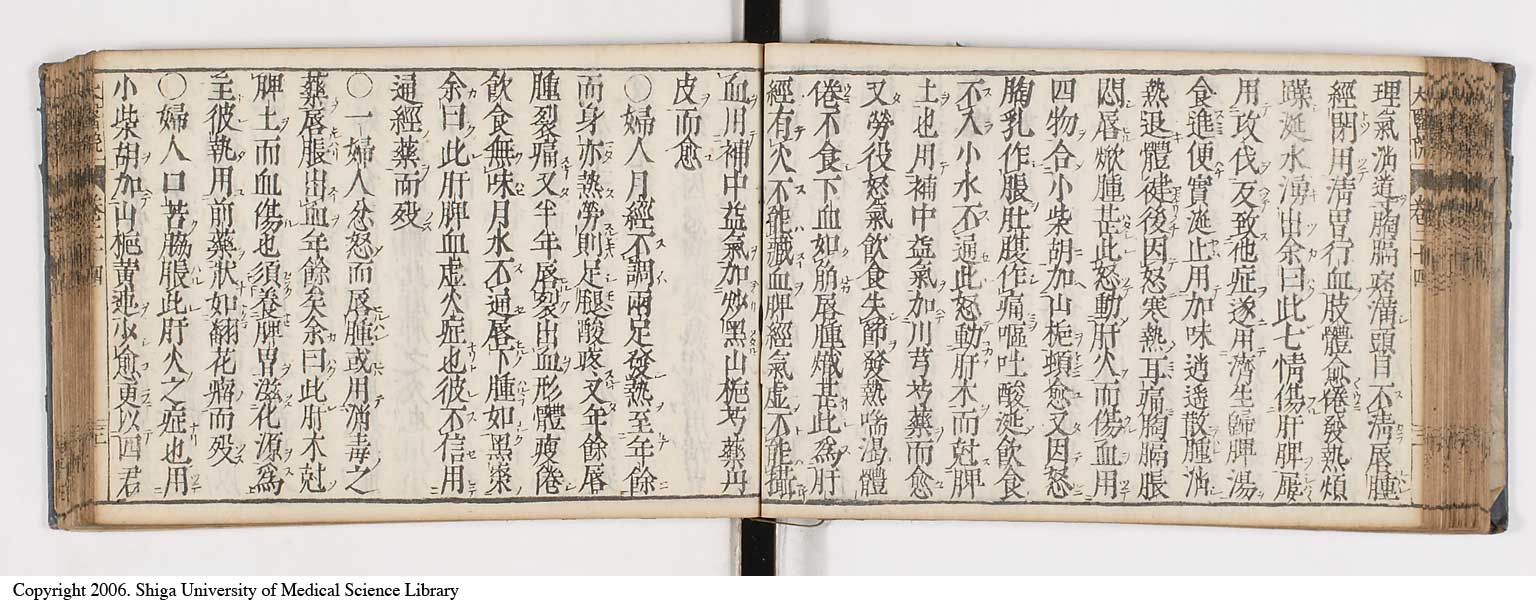 理氣消導胸膈痞滿頭目不淸唇腫
經閉用淸胃行血肢體愈倦發熱煩
躁涎水湧出余曰此七情傷肝脾屢
用攻伐反致他症遂用濟生歸脾湯
食進便實涎止用加味逍遙散腫消
熱退體健後因怒寒熱耳痛胸膈脹
悶唇焮腫甚此怒動肝火而傷血用
四物合小柴胡加山梔頓愈又因怒
胸乳作脹肚腹作痛嘔吐酸涎飲食
不入小水不通此怒動肝木而尅脾
土也用補中益氣加川芎芍藥而愈
又勞役怒氣飲食失節發熱喘渴體
倦不食下血如崩唇腫熾甚此爲肝
經有火不能藏血脾經氣虛不能攝
血用補中益氣加炒黑山梔芍藥丹
皮而愈
○婦人月經不調兩足發熱至年餘
而身亦熱勞則足腿酸疼又年餘唇
腫裂痛又半年唇裂出血形體瘦倦
飲食無味月水不通唇下腫如黑棗
余曰此肝脾血虛火症也彼不信用
通經藥而歿
○一婦人忿怒而唇腫或用消毒之
藥唇脹出血年餘矣余曰此肝木尅
脾土而血傷也須養脾胃滋化源爲
至彼執用前藥狀如翻花瘤而歿
○婦人口苦脇脹此肝火之症也用
小柴胡加山梔黃連少愈更以四君
Copyright 2006. Shiga University of Medical Science Library